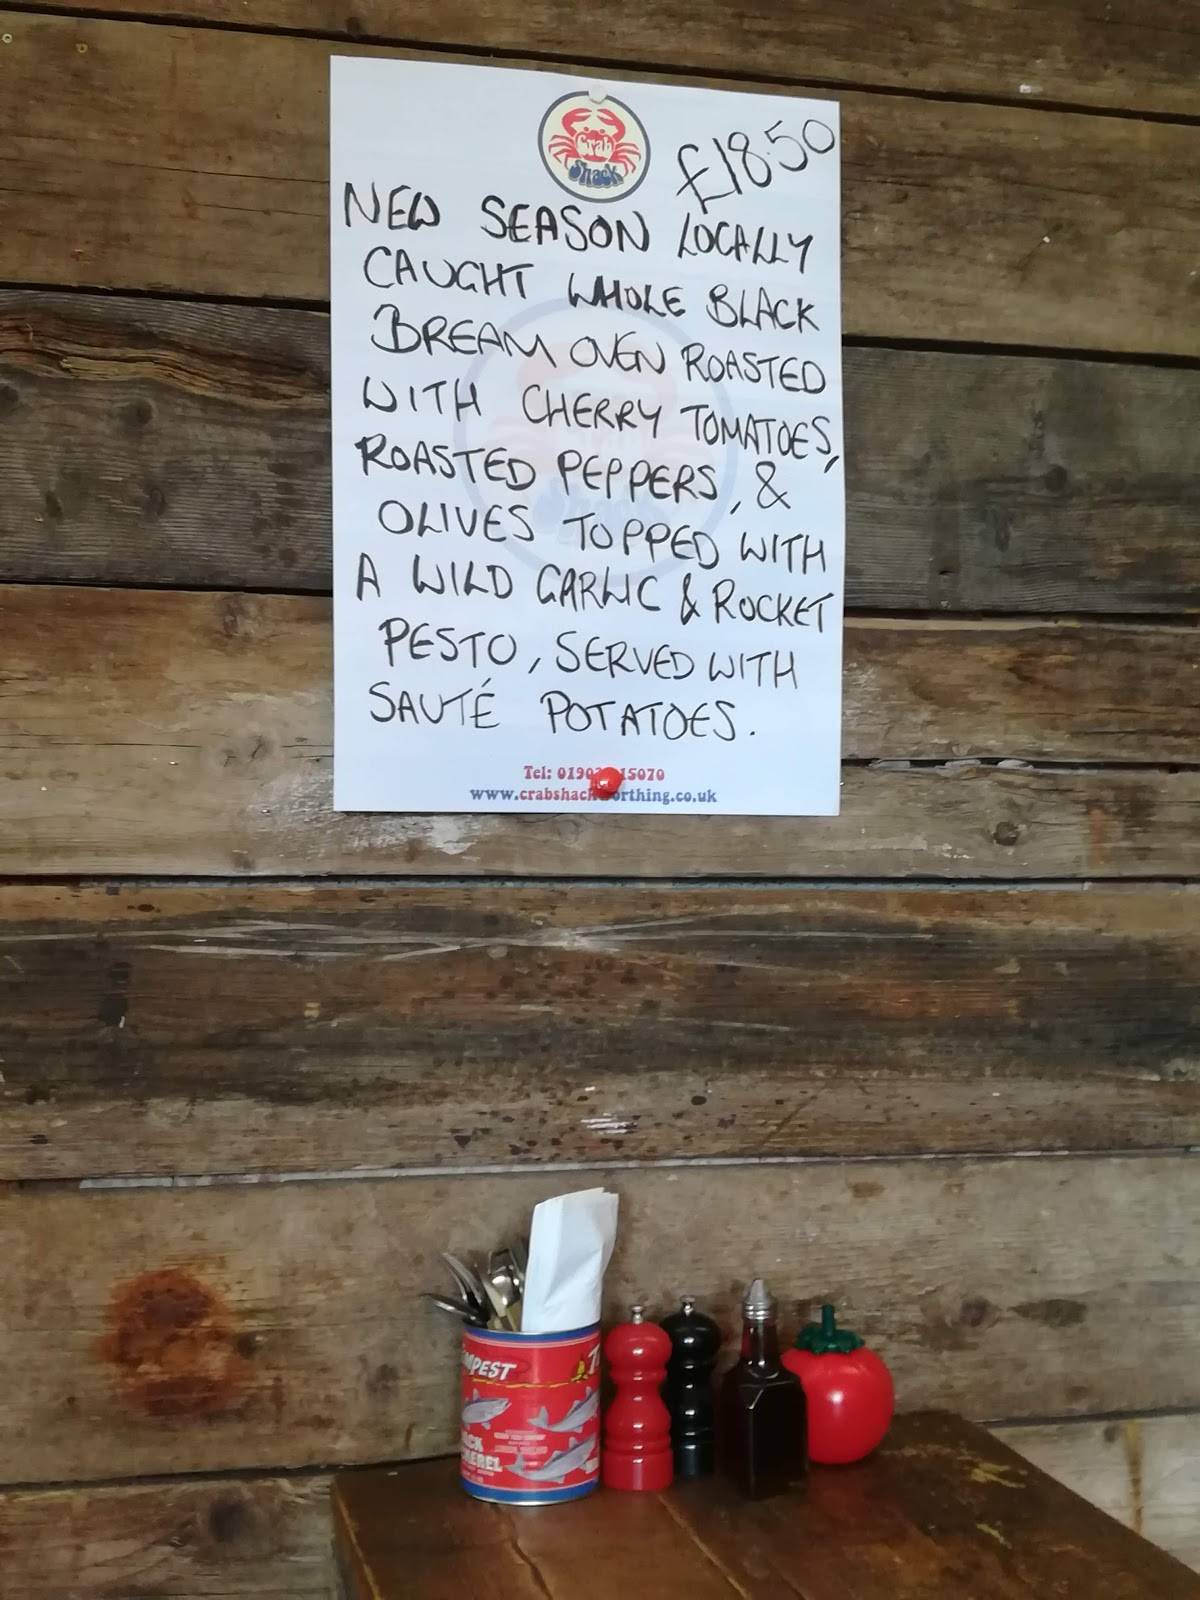 Crab
Shack
£18.50
NEW SEASON LOCALLY
CAUGHT WHOLE BLACK
BREAM OVEN ROASTED
WITH CHERRY TOMATOES,
ROASTED PEPPERS, &
OLIVES TOPPED WITH
A WILD GARLIC & ROCKET
PESTO, SERVED WITH
SAUTÉ POTATOES.
Tel: 0190 15070
www.crabshac orthing.co.uk
MPEST